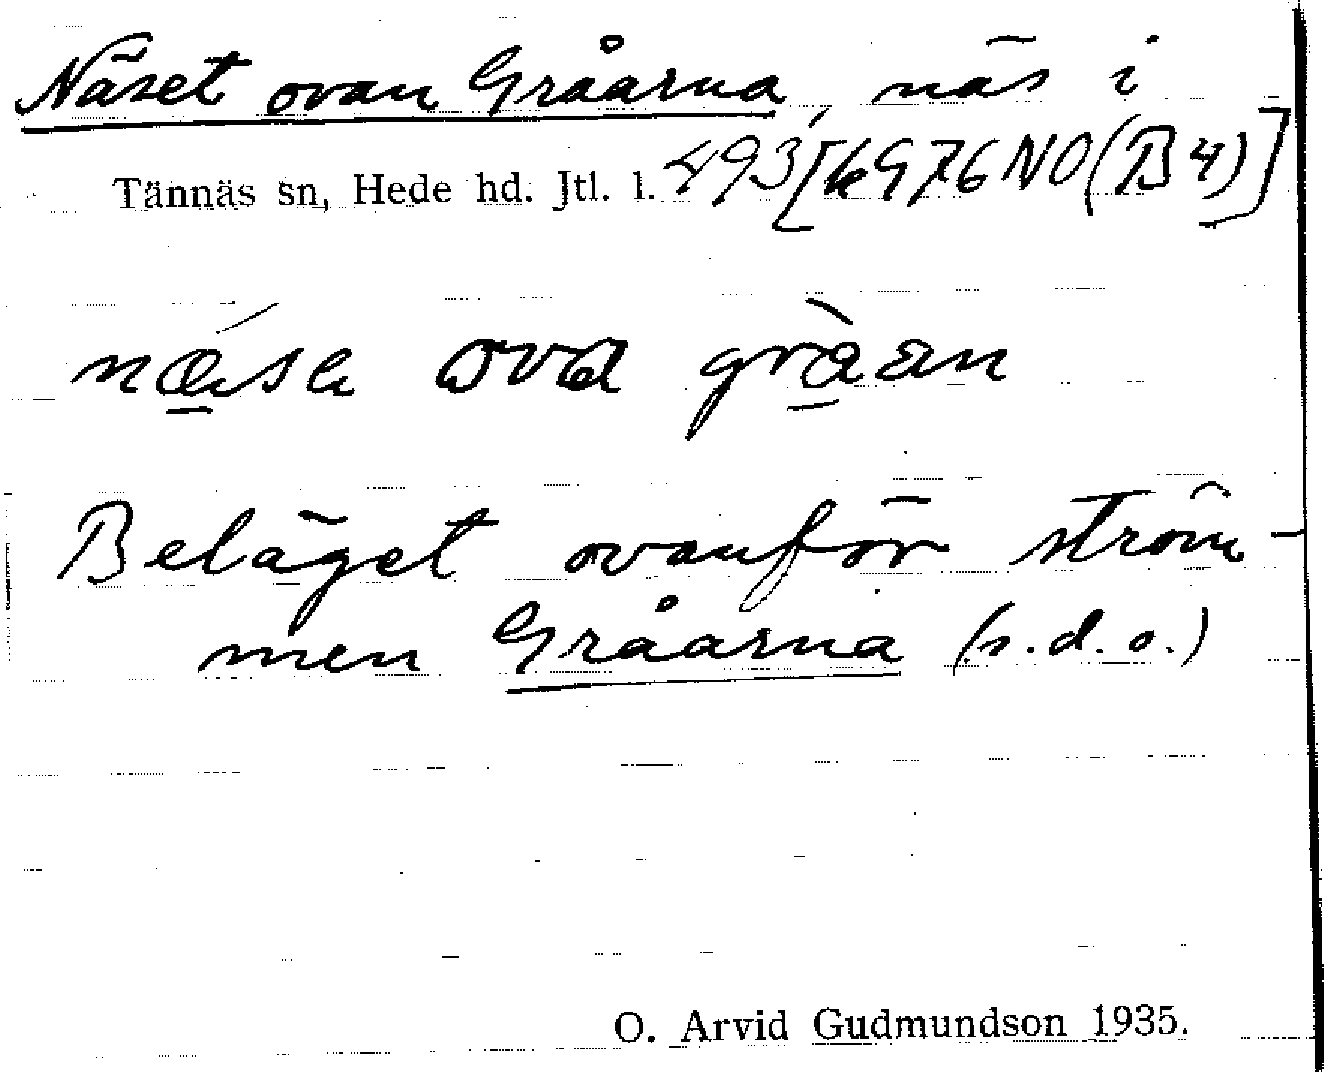 Näset ovan Gråarna, näs i
Tännäs sn, Hede hd. Jtl. l. 493[6976NO(B4)]
ova
Beläget ovanför ström-
men Gråarna (s.d.o.)
O. Arvid Gudmundson 1935.